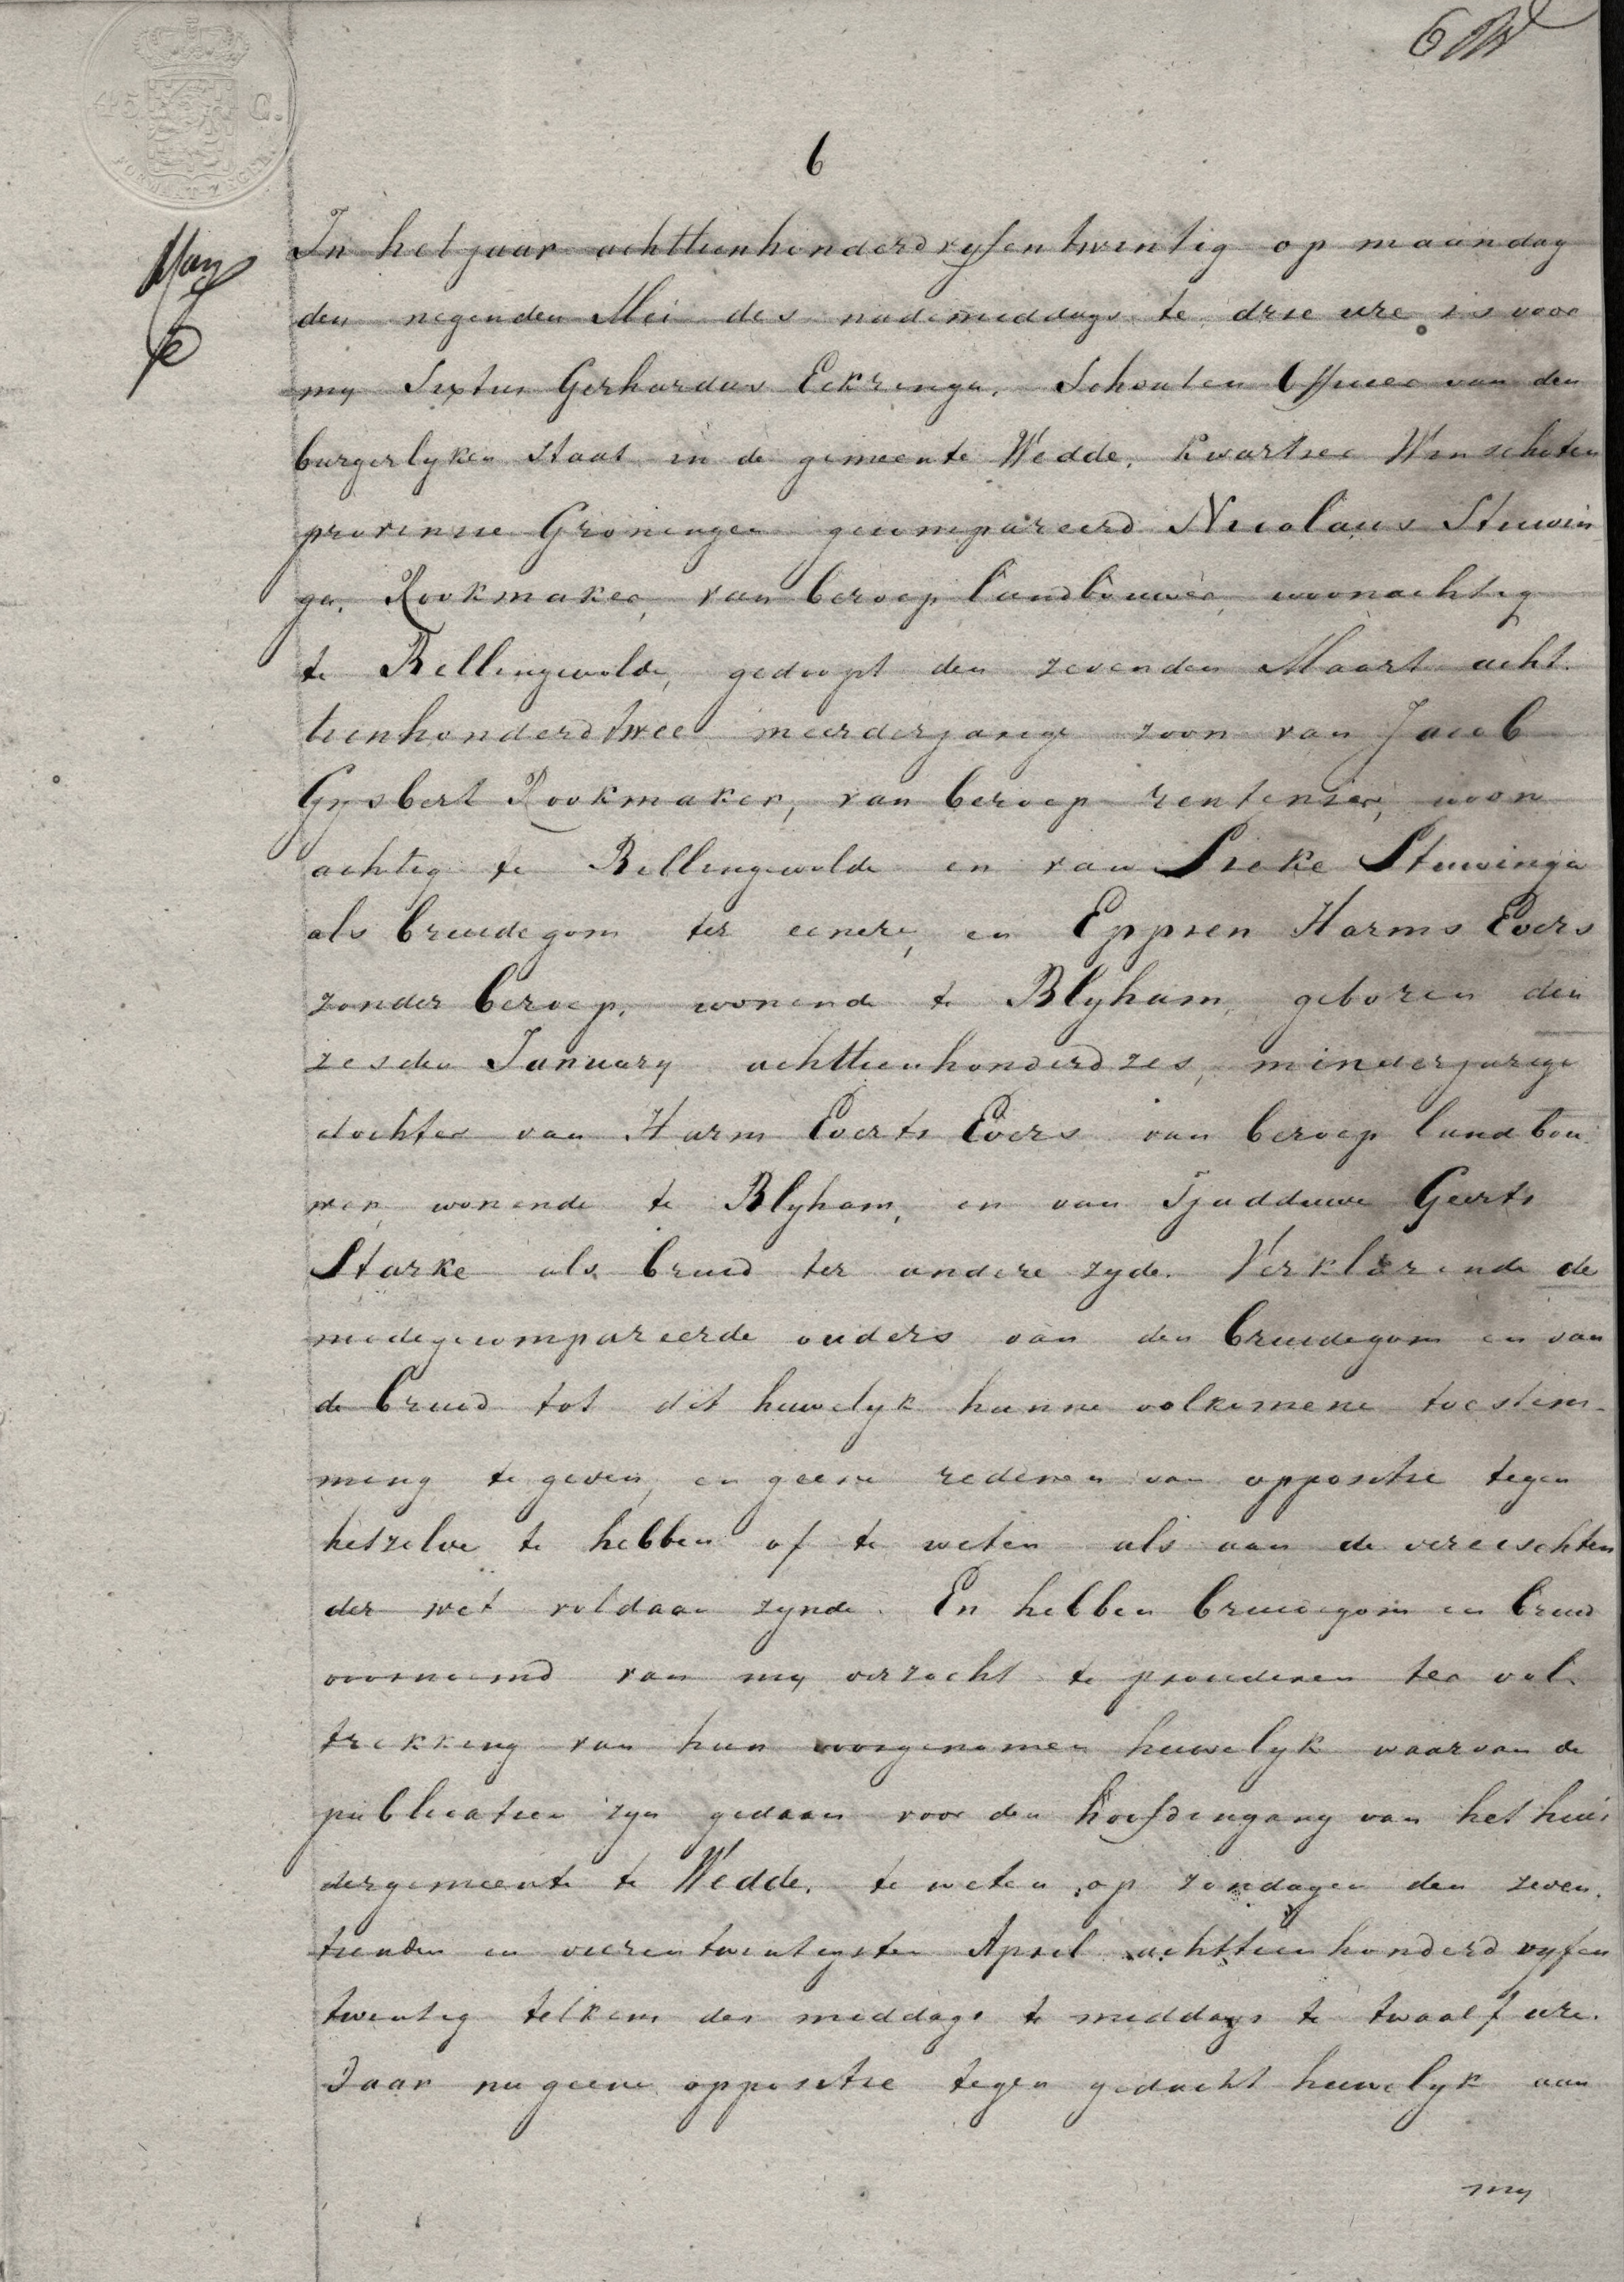 45 C.
6
6
May
In het jaar achttienhonderdvyfentwintig op maandag
den negenden Mei des nademiddags te drie ure is voor
my Sixtus Gerhardus Eckringa, Schout en Officier van den
burgerlyken Staat in de gemeente Wedde, kwartier Winschoten
provincie Groningen gecompareerd Nicolaus Stuvin
ga, Rookmaker, van beroep landbouwer, woonachtig
te Bellingwolde, gedoopt den zevenden Maart acht
tienhonderdtwee meerderjarige zoon van Jacob
Gysbert Rookmaker, van beroep rentenier, woon
achtig te Bellingwolde en van Sieke Stuvinga
als bruidegom ter eenere, en Eppien Harms Evers
zonder beroep, wonende te Blyham, geboren den
zesden January achttienhonderdzes, minderjarige
dochter van Harm Everts Evers van beroep landbou
wer, wonende te Blyham, en van Tjadduwe Geerts
Starke als bruid ter andere zyde. Verklarende de
medegecompareerde ouders van den bruidegom en van
de bruid tot dit huwelyk hunne volkomene toestem-
ming te geven, en geene redenen van oppositie tegen
hetzelve te hebben of te weten als aan de vereischten
der wet voldaan zynde. En hebben bruidegom en bruid
voornoemd van my verzocht te procederen ter vol
trekking van hun voorgenomen huwelyk waarvan de
publicatien zyn gedaan voor den hoofdingang van het huis
dergemeente te Wedde, te weten op zondagen den zeven
tienden en vierentwintigsten April achttienhonderdvyfen
twintig telkens des middags te middags te twaalf ure.
Daar nu geene oppositie tegen gedacht huwelyk aan
my